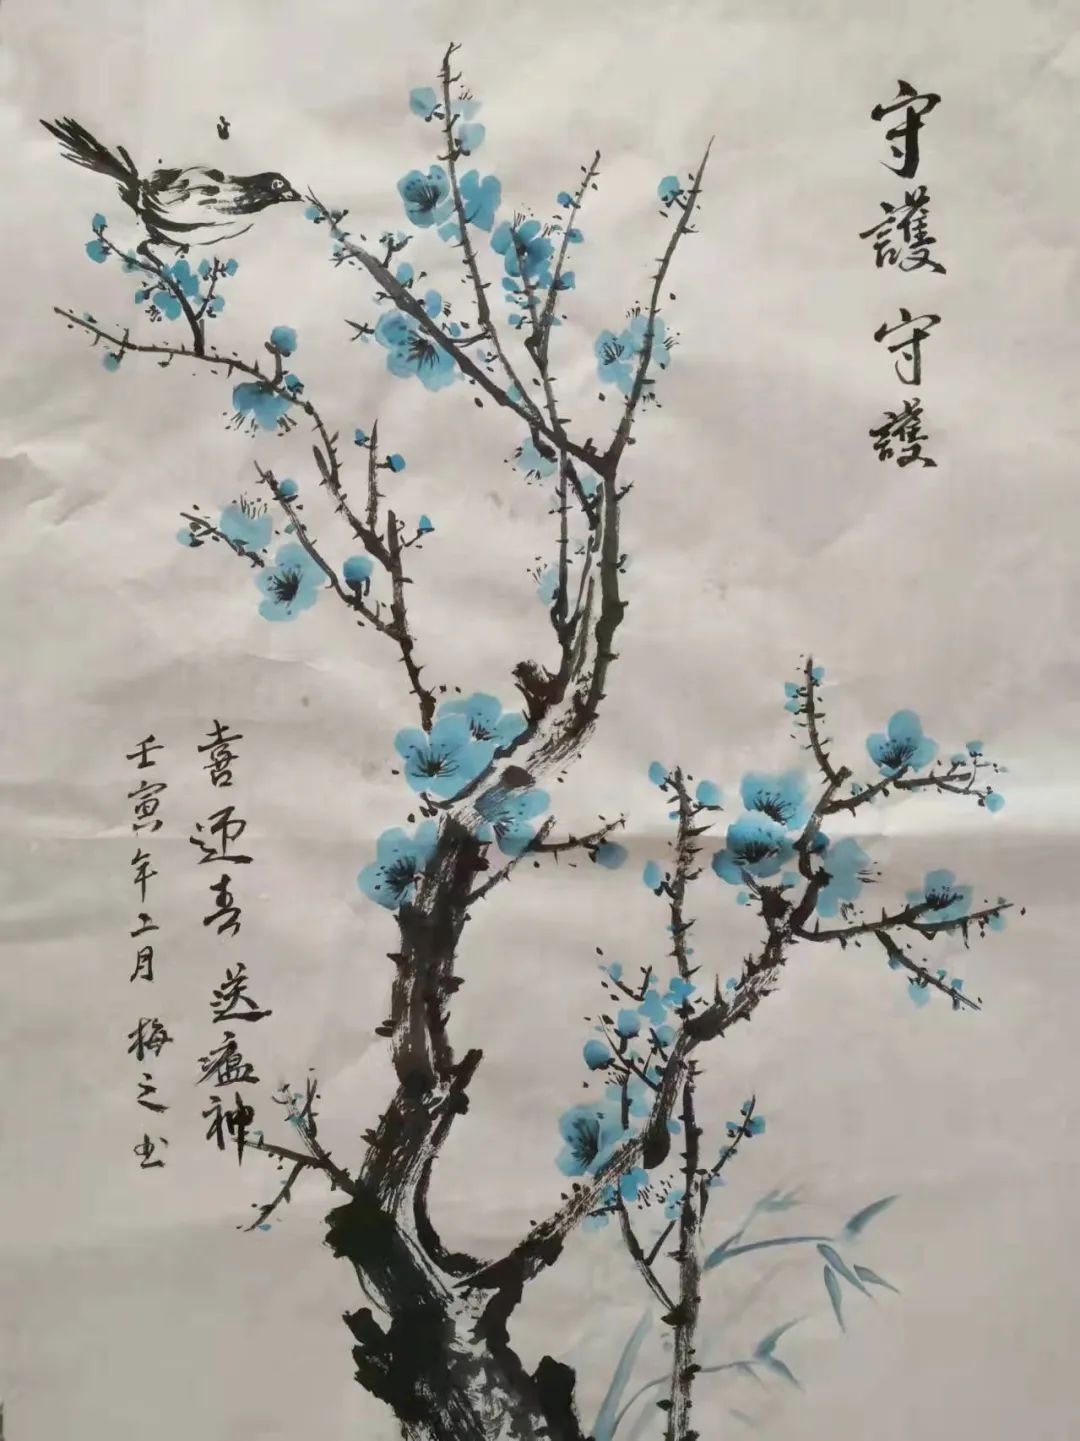 守護守護
喜迎春送瘟神
壬寅年二月 梅之书